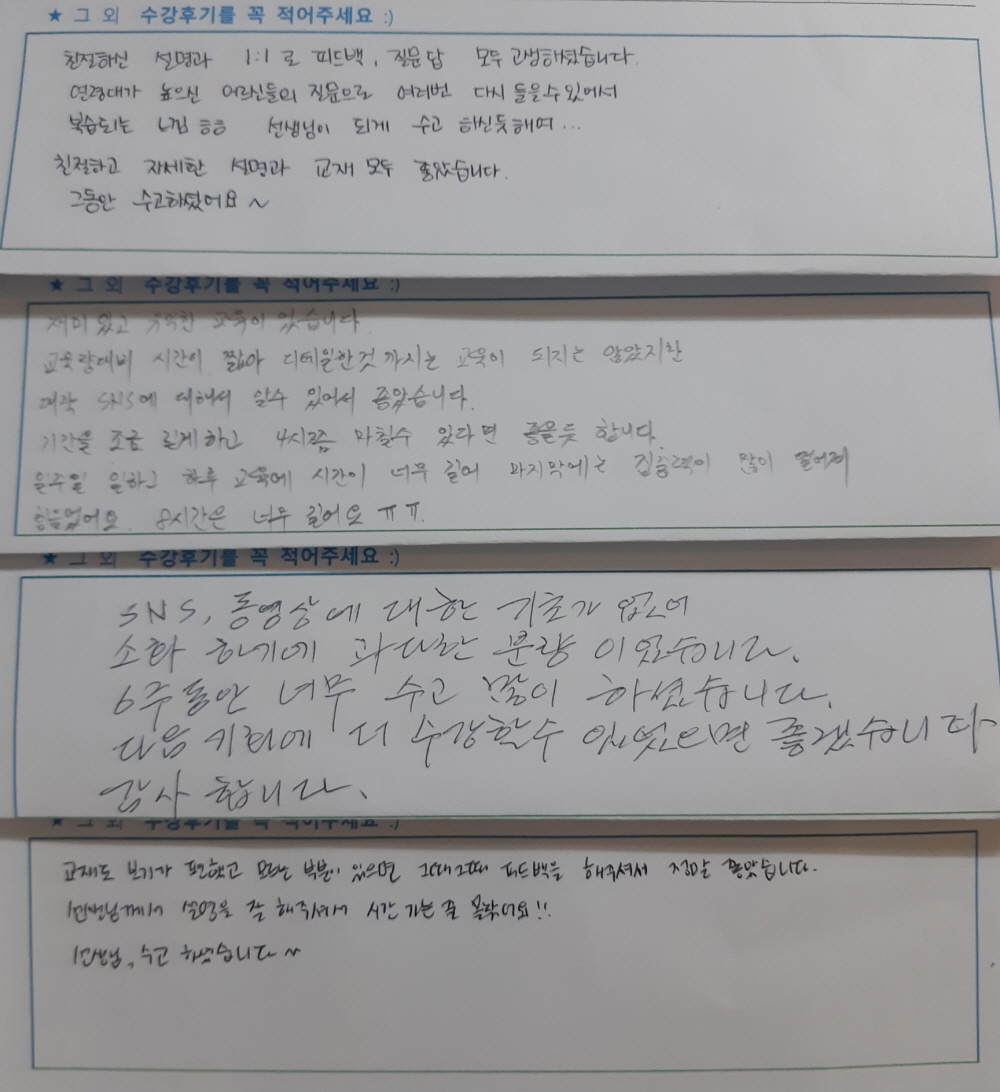 ★ 그 외 수강후기를 꼭 적어주세요 :)
친절하신 설명과 1:1로 피드백, 질문답 모두 고생하셨습니다.
연령대가 높으신 어르신들의 질문으로 여러번 다시 들을수있어서
복습되는 느낌 ㅎㅎ 선생님이 되게 수고 하신듯해여...
친절하고 자세한 설명과 교재 모두 좋았습니다.
그동안 수고하셨어요~
★ 그 외 수강후기를 꼭 적어주세요 :)
재미있고 유익한 교육이 었습니다
교육량대비 시간이 짧아 디테일한것 까지는 교육이 되지는 않았지만
대략 SNS에 대해서 알수 있어서 좋았습니다.
기간을 조금 길게하고 4시쯤 마칠수 있다면 좋을듯 합니다.
일주일 일하고 하루 교육에 시간이 너무 길어 마지막에는 집중력이 많이 떨어져
힘들었어요. 8시간은 너무 길어요 ㅠㅠ.
★ 그 외 수강후기를 꼭 적어주세요 :)
SNS, 동영상에 대한 기초가 없어
소화 하기에 과다한 분량 이었습니다.
6주동안 너무 수고 많이 하셨습니다.
다음 기회에 더 수강할수 있었으면 좋겠습니다
감사 합니다.
★ 그 외 수강후기를 꼭 적어주세요 :)
교재도 보기가 편했고 모르는 부분이 있으면 그때그때 피드백을 해주셔서 정말 좋았습니다.
선생님께서 설명을 잘 해주셔서 시간 가는 줄 몰랐어요!!
선생님, 수고 하셨습니다~